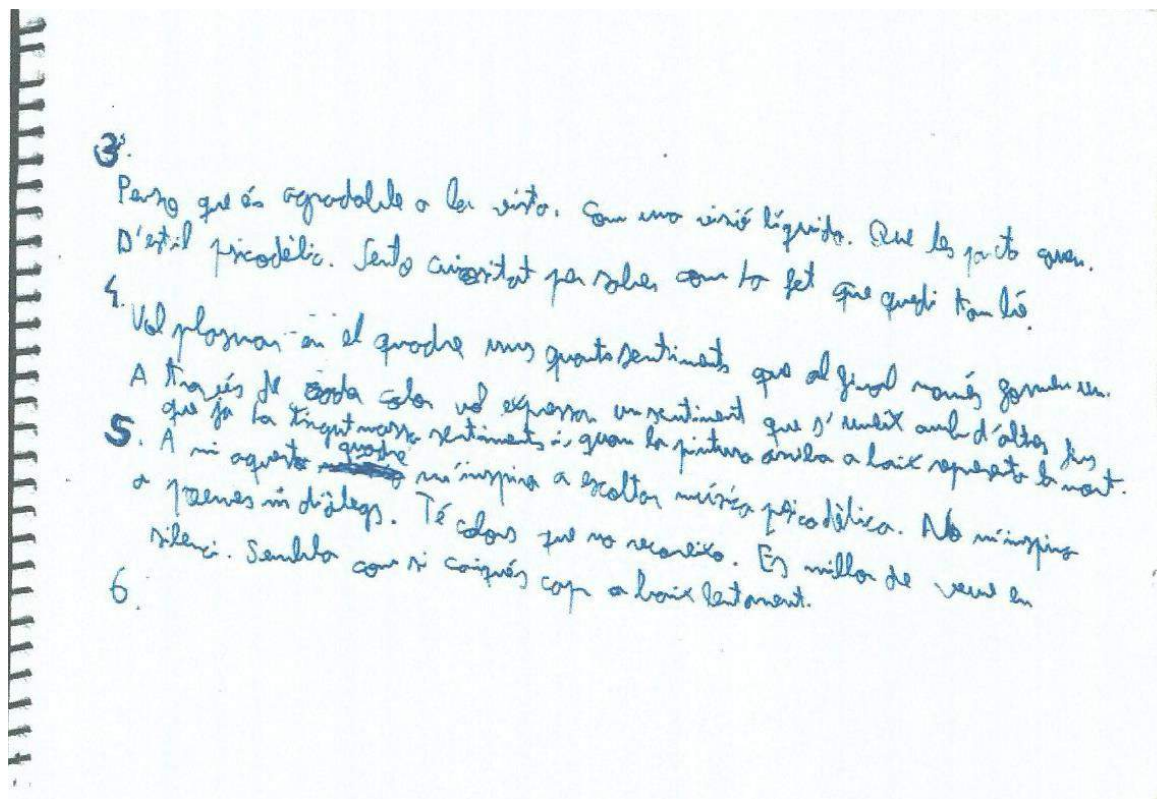 3.
Penso que és agradable a la vista. Com una visió líquida. Que les
D'estil psicodèlic. Sento curiositat per saber com ho fet que quedi tan bé.
4.
Vol plasmar en el quadre uns quants sentiments que al final només formen un.
A través de cada color vol expressar un sentiment que s'uneix amb d'altres fins
que ja ha tingut massa sentiments i, quan la pintura arriba a baix representa la mort.
5. A mi aquest quadre m'inspira a escoltar música psicodèlica. No m'inspira
a poemes ni diàlegs. Té colors que no reconeixo. Es millor de veure en
silenci. Sembla com si caigués cap a baix lentament.
6.